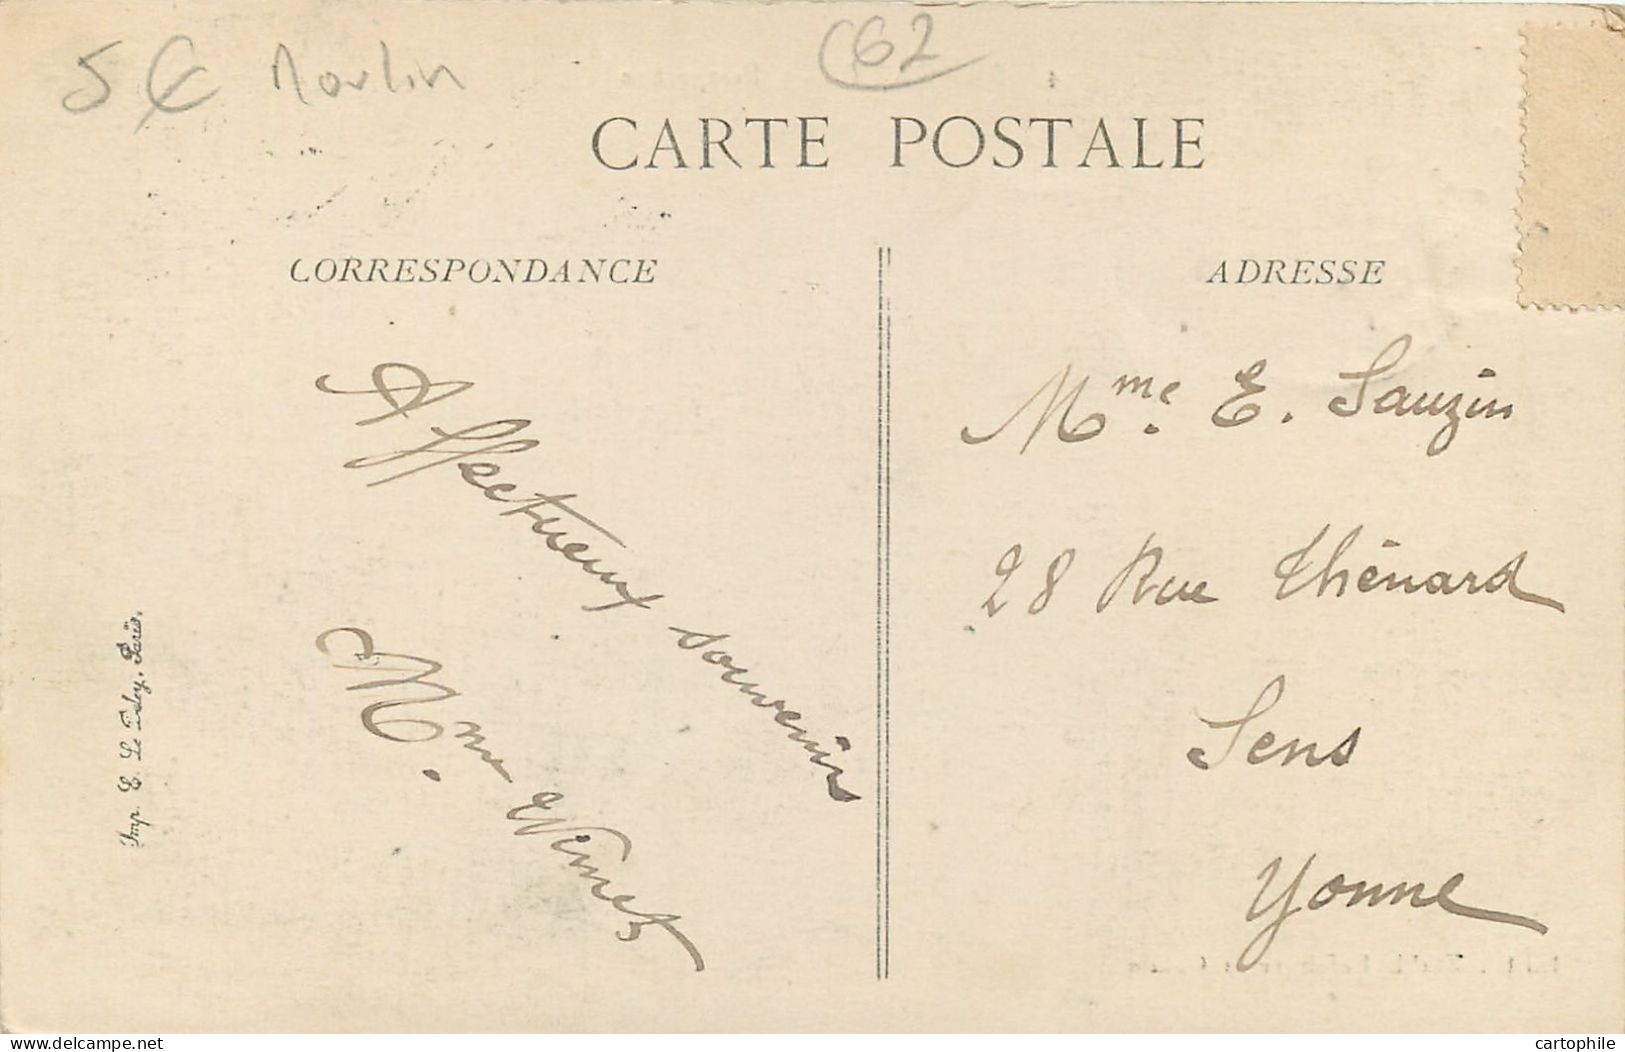 5 € Moulin
62
CARTE POSTALE
CORRESPONDANCE
ADRESSE
Affectueux souvenir
Mme Vimet
Mme. E. Sauzin
28 Rue Thénard
Sens
Yonne
Imp. E. Le Deley, Paris.
delcampe.net
cartophile